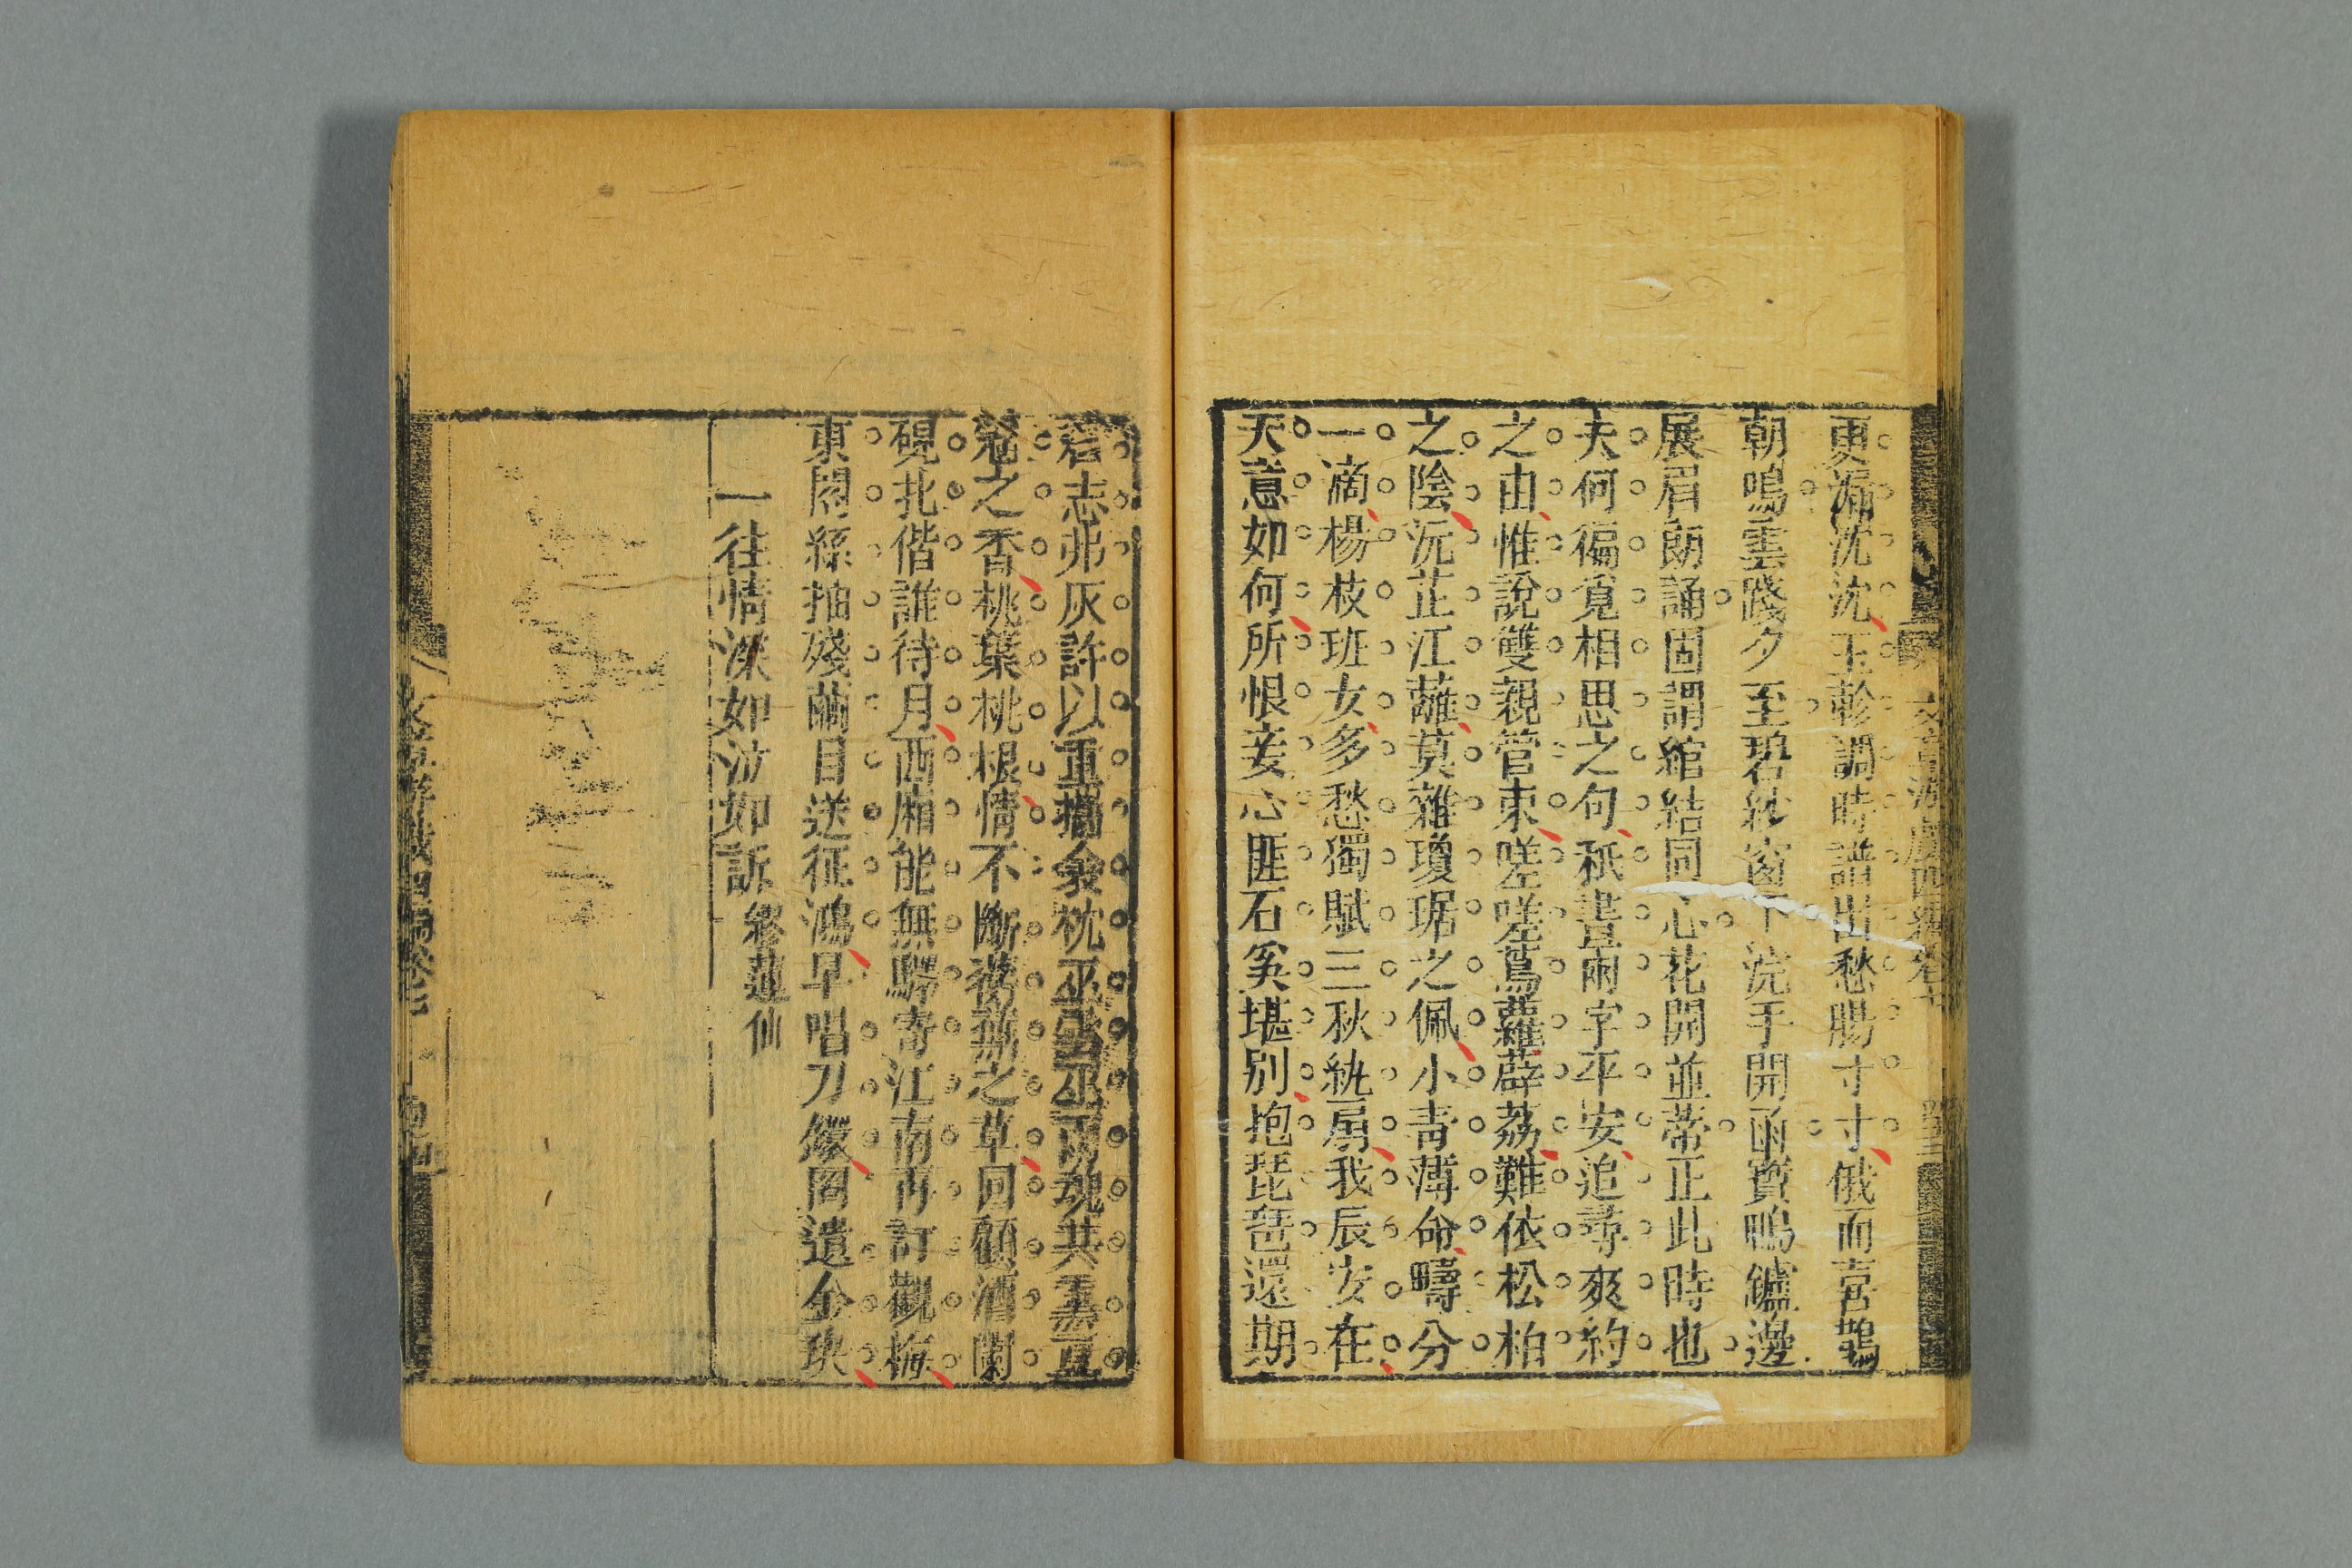 更漏沈沈玉軫調時譜出愁腸寸寸俄而喜鵲
朝鳴雲踐夕至碧紗窗下浣手開函寶鴨鑪邊
展眉朗誦固謂綰結同心花開並蒂正此時也
夫何徧覓相思之句秖書兩字平安追尋爽約
之由惟說雙親管束嗟嗟蔦蘿薜荔難依松柏
之陰沅芷江蘺莫雜瓊琚之佩小青薄命疇分
一滴楊枝班女多愁獨賦三秋紈扇我辰安在
天意如何所恨妾心匪石奚堪別抱琵琶還期
君志弗灰許以重攜衾枕巫雲巫雨魂共荳
蔻之香桃葉桃根情不斷蘼蕪之草回顧酒闌
硯北偕誰待月西廂能無驛寄江南再訂觀梅
東閣絲抽殘繭目送征鴻早唱刀鐶同遺金玦
一往情深如泣如訴 繆蓮仙